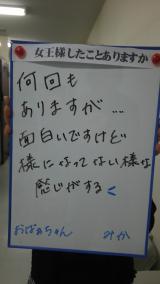 女王様したことありますか
何回も
ありますが…
面白いですけど
様になってない様な
感じがする
おばぁちゃん みか